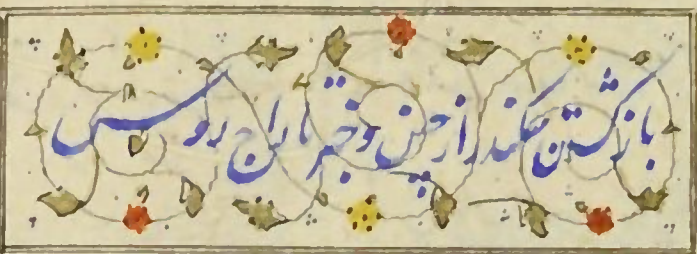 بازگشتن سکندر از چین و خبر تاراج روس